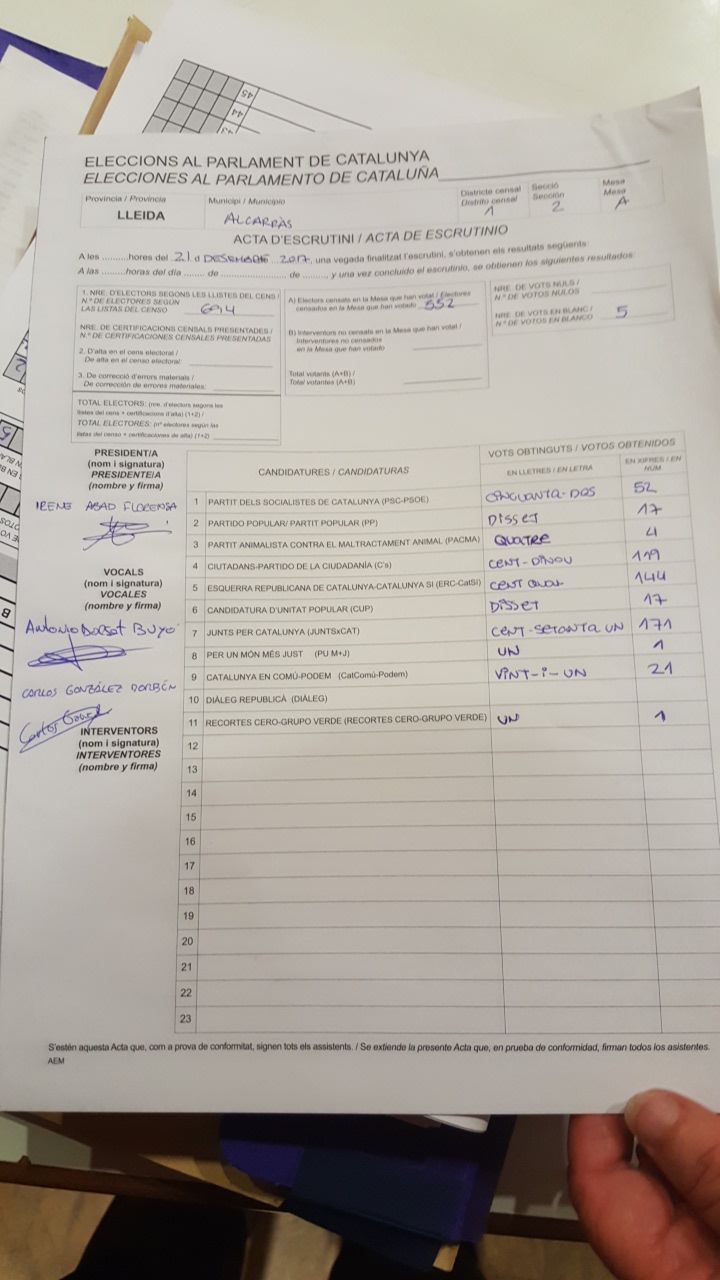 45
44
43
ELECCIONS AL PARLAMENT DE CATALUNYA
ELECCIONES AL PARLAMENTO DE CATALUÑA
Província / Provincia
LLEIDA
Municipi / Municipio
ALCARRÀS
Districte censal
Distrito censal
1
Secció
Sección
2
Mesa
Mesa
A
ACTA D'ESCRUTINI / ACTA DE ESCRUTINIO
A les .........hores del 21 d DESEMBRE 2017, una vegada finalitzat l'escrutini, s'obtenen els resultats següents:
A las .........horas del día ....... de .................................. de ........, y una vez concluido el escrutinio, se obtienen los siguientes resultados:
1. NRE. D'ELECTORS SEGONS LES LLISTES DEL CENS /
N.º DE ELECTORES SEGÚN
LAS LISTAS DEL CENSO 694
NRE. DE CERTIFICACIONS CENSALS PRESENTADES /
N.º DE CERTIFICACIONES CENSALES PRESENTADAS
2. D'alta en el cens electoral /
De alta en el censo electoral:
3. De correcció d'errors materials /
De corrección de errores materiales:
TOTAL ELECTORS: (nre. d'electors segons les
llistes del cens + certificacions d'alta) (1+2) /
TOTAL ELECTORES: (nº electores según las
listas del censo + certificaciones de alta) (1+2)
A) Electors censats en la Mesa que han votat / Electores
censados en la Mesa que han votado 552
B) Interventors no censats en la Mesa que han votat /
Interventores no censados
en la Mesa que han votado
Total votants (A+B) /
Total votantes (A+B)
NRE. DE VOTS NULS /
N.º DE VOTOS NULOS
NRE. DE VOTS EN BLANC /
N.º DE VOTOS EN BLANCO 5
PRESIDENT/A
(nom i signatura)
PRESIDENTE/A
(nombre y firma)
IRENE ABAD FLORENSA
VOCALS
(nom i signatura)
VOCALES
(nombre y firma)
Antonio Dorsot Buyo
CARLOS GONZÁLEZ DORBÉN
INTERVENTORS
(nom i signatura)
INTERVENTORES
(nombre y firma)
CANDIDATURES / CANDIDATURAS
VOTS OBTINGUTS / VOTOS OBTENIDOS
EN LLETRES / EN LETRA
EN XIFRES / EN NUM
1 PARTIT DELS SOCIALISTES DE CATALUNYA (PSC-PSOE) CINQUANTA-DOS 52
2 PARTIDO POPULAR/ PARTIT POPULAR (PP) DISSET 17
3 PARTIT ANIMALISTA CONTRA EL MALTRACTAMENT ANIMAL (PACMA) QUATRE 4
4 CIUTADANS-PARTIDO DE LA CIUDADANÍA (C's) CENT-DINOU 119
5 ESQUERRA REPUBLICANA DE CATALUNYA-CATALUNYA SÍ (ERC-CatSÍ) CENT 144
6 CANDIDATURA D'UNITAT POPULAR (CUP) DISSET 17
7 JUNTS PER CATALUNYA (JUNTSxCAT) CENT-SETANTA UN 171
8 PER UN MÓN MÉS JUST (PU M+J) UN 1
9 CATALUNYA EN COMÚ-PODEM (CatComú-Podem) VINT-I-UN 21
10 DIÀLEG REPUBLICÀ (DIÀLEG)
11 RECORTES CERO-GRUPO VERDE (RECORTES CERO-GRUPO VERDE) UN 1
12
13
14
15
16
17
18
19
20
21
22
23
S'estén aquesta Acta que, com a prova de conformitat, signen tots els assistents. / Se extiende la presente Acta que, en prueba de conformidad, firman todos los asistentes.
AEM